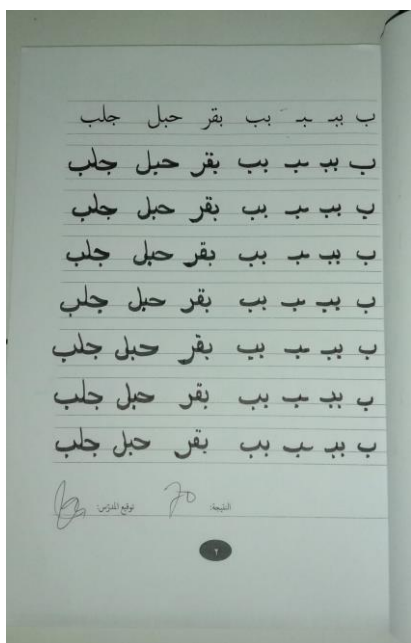 ب ببـ ـبـ بب بقر حبل جلب
ب ببـ ـبـ بب بقر حبل جلب
ب ببـ ـبـ بب بقر حبل جلب
ب ببـ ـبـ بب بقر حبل جلب
ب ببـ ـبـ بب بقر حبل جلب
ب ببـ ـبـ بب بقر حبل جلب
ب ببـ ـبـ بب بقر حبل جلب
ب ببـ ـبـ بب بقر حبل جلب
النتيجة: 70 توقيع المدرّس:
٢